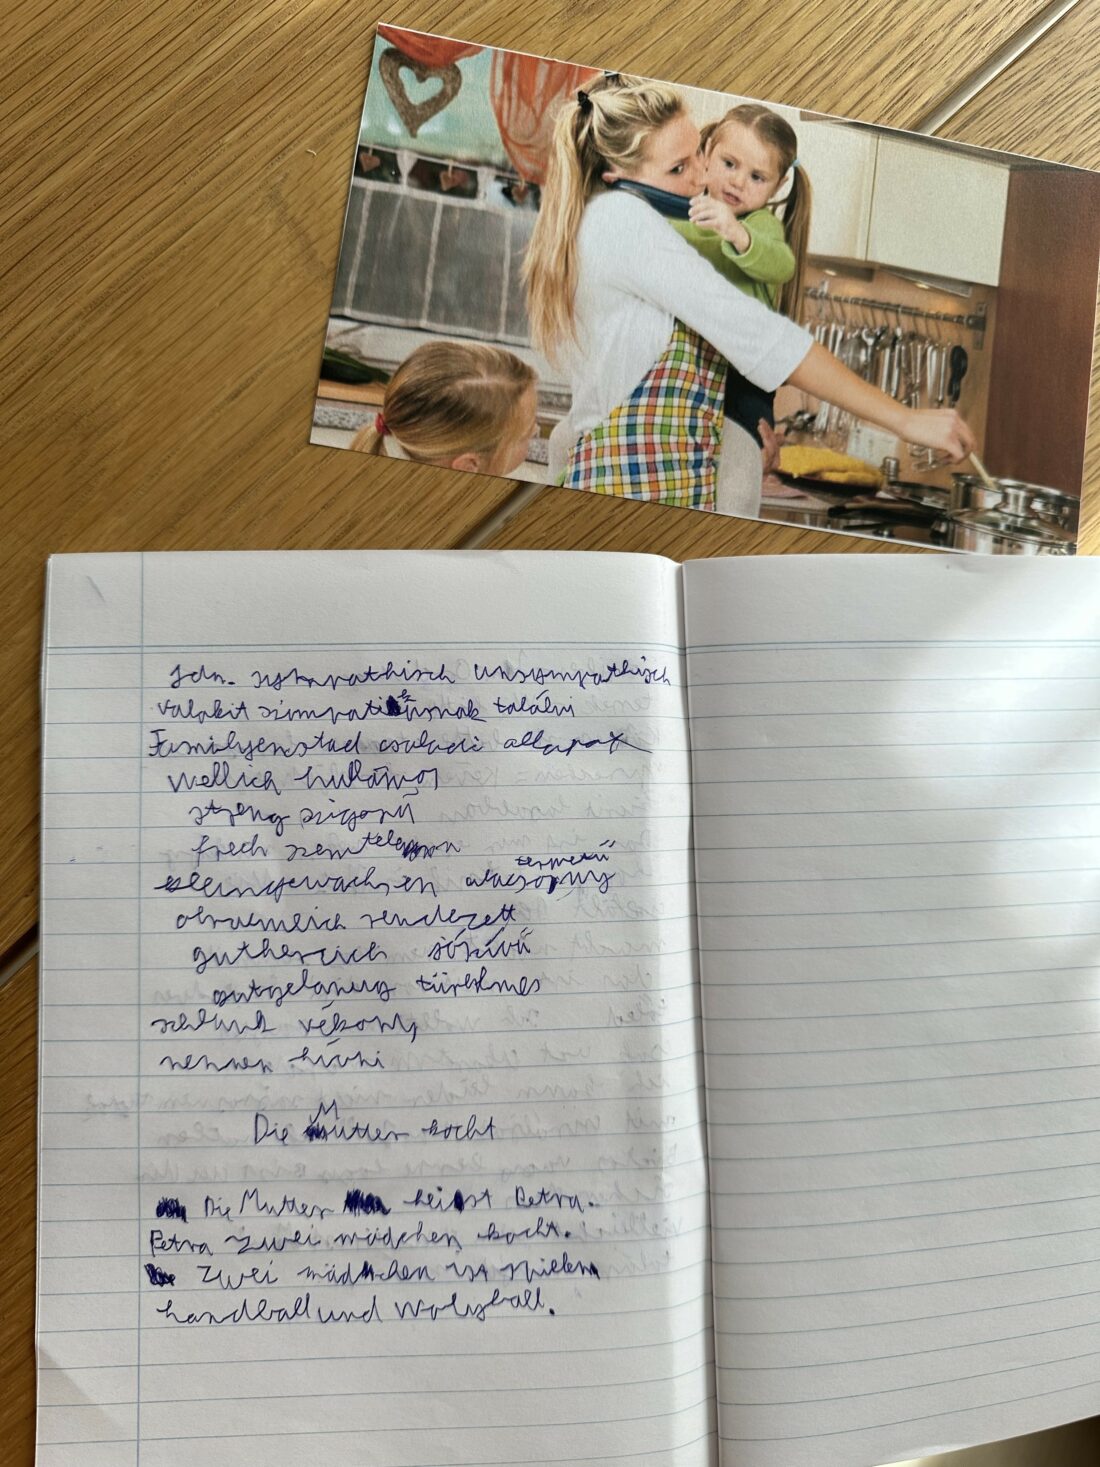 Jdn. sympathisch unsympathisch
valakit szimpatikusnak találni
Familienstad családi állapot
wellich hullámos
streng szigorú
frech szemtelen
kleingewachsen alacsony termetű
ordnemlich rendezett
gutherzich jószívű
türelmes
schlunk vékony
nennen hívni
Die Mutter kocht
Die Mutter heisst Petra.
Petra zwei mädchen kocht.
Zwei mädchen ist spielen
handball und Wolyball.